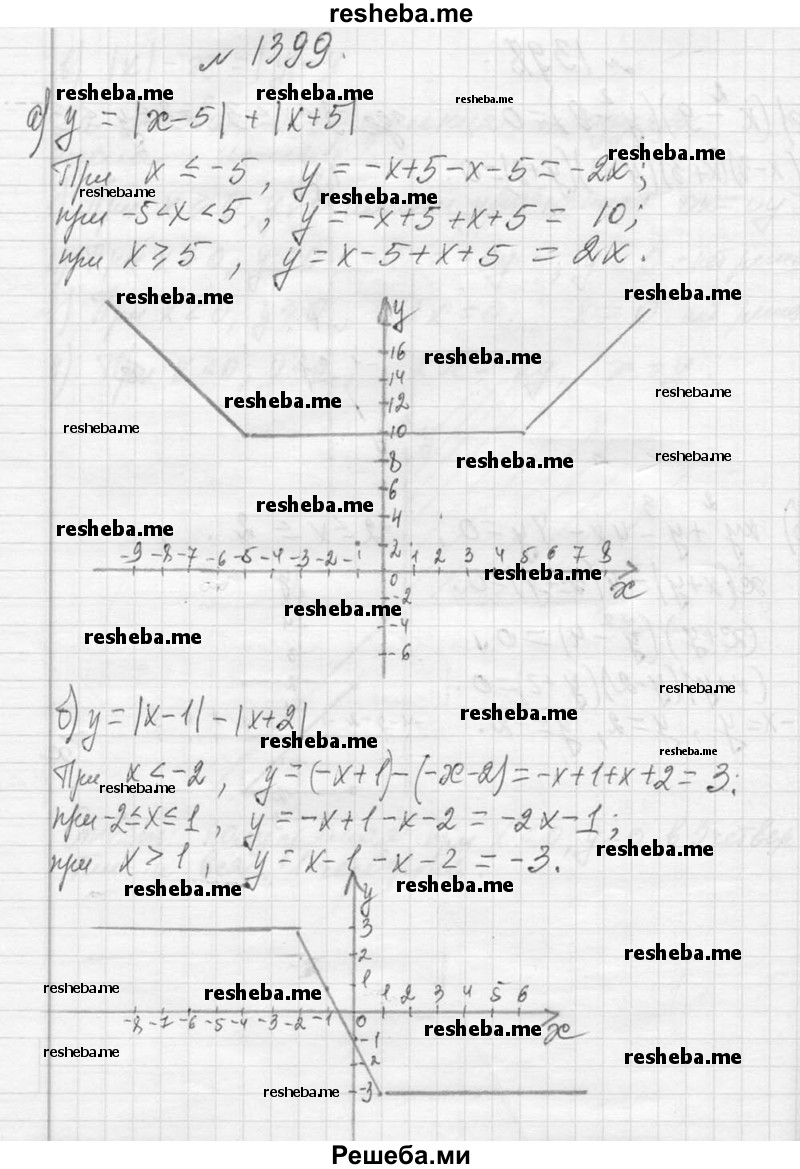 resheba.me
№ 1399.
resheba.me resheba.me resheba.me
а) y = |x-5| + |x+5|
resheba.me
При x ≤ -5, y = -x+5-x-5 = -2x;
resheba.me resheba.me
при -5<x<5, y = -x+5+x+5 = 10;
при x ≥ 5, y = x-5+x+5 = 2x.
resheba.me resheba.me
y
16
resheba.me
14
resheba.me
12
resheba.me
resheba.me
10
resheba.me
8
resheba.me
6
resheba.me
4
resheba.me
-9 -8 -7 -6 -5 -4 -3 -2 -1 2 1 2 3 4 5 6 7 8
resheba.me
0 x
-2
resheba.me
-4
resheba.me
-6
resheba.me
б) y = |x-1| - |x+2|
resheba.me
resheba.me
resheba.me
При x < -2, y = (-x+1)-(-x-2) = -x+1+x+2 = 3;
resheba.me
при -2≤x≤1, y = -x+1-x-2 = -2x-1;
resheba.me
при x > 1, y = x-1-x-2 = -3.
resheba.me resheba.me
y
3
2
resheba.me
1
resheba.me resheba.me
1 2 3 4 5 6
-8 -7 -6 -5 -4 -3 -2 -1 0 x
resheba.me
-1
resheba.me
resheba.me
-2
resheba.me
-3
Решеба.ми